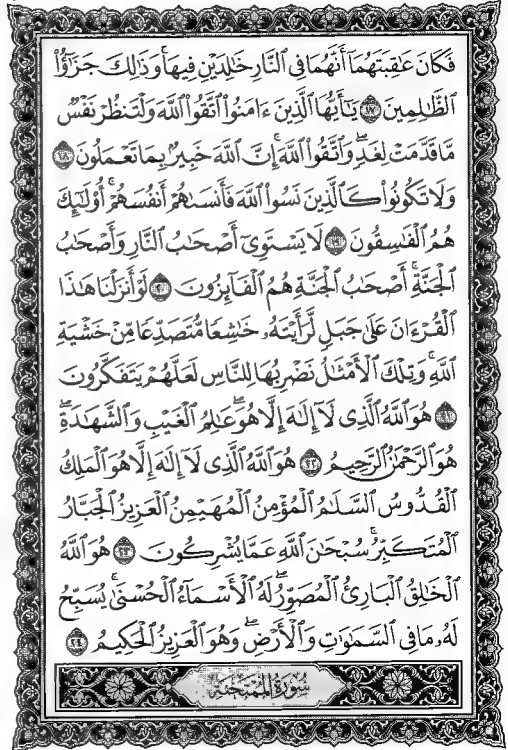 فَكَانَ عَٰقِبَتَهُمَآ أَنَّهُمَا فِى ٱلنَّارِ خَٰلِدَيْنِ فِيهَا ۚ وَذَٰلِكَ جَزَٰٓؤُا۟
ٱلظَّٰلِمِينَ ١٧ يَٰٓأَيُّهَا ٱلَّذِينَ ءَامَنُوا۟ ٱتَّقُوا۟ ٱللَّهَ وَلْتَنظُرْ نَفْسٌ
مَّا قَدَّمَتْ لِغَدٍ ۖ وَٱتَّقُوا۟ ٱللَّهَ ۚ إِنَّ ٱللَّهَ خَبِيرٌۢ بِمَا تَعْمَلُونَ ١٨
وَلَا تَكُونُوا۟ كَٱلَّذِينَ نَسُوا۟ ٱللَّهَ فَأَنسَىٰهُمْ أَنفُسَهُمْ ۚ أُو۟لَٰٓئِكَ
هُمُ ٱلْفَٰسِقُونَ ١٩ لَا يَسْتَوِىٓ أَصْحَٰبُ ٱلنَّارِ وَأَصْحَٰبُ
ٱلْجَنَّةِ ۚ أَصْحَٰبُ ٱلْجَنَّةِ هُمُ ٱلْفَآئِزُونَ ٢٠ لَوْ أَنزَلْنَا هَٰذَا
ٱلْقُرْءَانَ عَلَىٰ جَبَلٍ لَّرَأَيْتَهُۥ خَٰشِعًا مُّتَصَدِّعًا مِّنْ خَشْيَةِ
ٱللَّهِ ۚ وَتِلْكَ ٱلْأَمْثَٰلُ نَضْرِبُهَا لِلنَّاسِ لَعَلَّهُمْ يَتَفَكَّرُونَ
٢١ هُوَ ٱللَّهُ ٱلَّذِى لَآ إِلَٰهَ إِلَّا هُوَ ۖ عَٰلِمُ ٱلْغَيْبِ وَٱلشَّهَٰدَةِ ۖ
هُوَ ٱلرَّحْمَٰنُ ٱلرَّحِيمُ ٢٢ هُوَ ٱللَّهُ ٱلَّذِى لَآ إِلَٰهَ إِلَّا هُوَ ٱلْمَلِكُ
ٱلْقُدُّوسُ ٱلسَّلَٰمُ ٱلْمُؤْمِنُ ٱلْمُهَيْمِنُ ٱلْعَزِيزُ ٱلْجَبَّارُ
ٱلْمُتَكَبِّرُ ۚ سُبْحَٰنَ ٱللَّهِ عَمَّا يُشْرِكُونَ ٢٣ هُوَ ٱللَّهُ
ٱلْخَٰلِقُ ٱلْبَارِئُ ٱلْمُصَوِّرُ ۖ لَهُ ٱلْأَسْمَآءُ ٱلْحُسْنَىٰ ۚ يُسَبِّحُ
لَهُۥ مَا فِى ٱلسَّمَٰوَٰتِ وَٱلْأَرْضِ ۖ وَهُوَ ٱلْعَزِيزُ ٱلْحَكِيمُ ٢٤
سُورَةُ المُمْتَحنَة